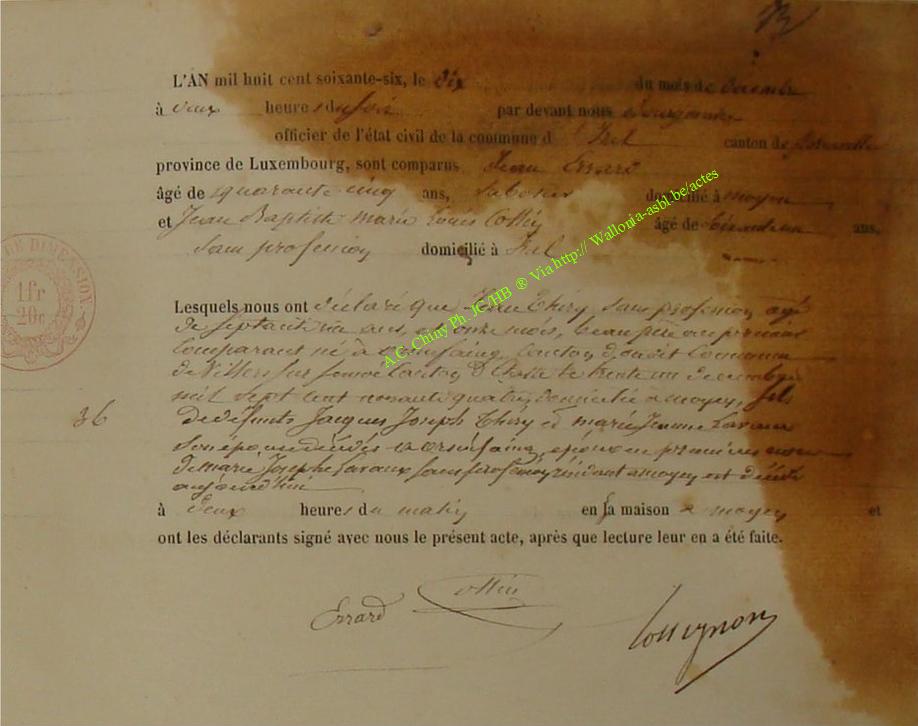 L'AN mil huit cent soixante-six, le dix du mois de décembre
à deux heures du soir par devant nous Bourgmestre
officier de l'état civil de la commune d' Izel canton de Florenville
province de Luxembourg, sont comparus Jean Errard
âgé de quarante cinq ans, sabotier domicilié à moyen
et Jean Baptiste marie Louis Collin âgé de ans,
Sans profession domicilié à Izel
Lesquels nous ont déclaré que Jean Thiry sans profession agé
de septante un ans, et onze mois, beau père au premier
Comparant né à Orsinfaing Canton dudit Commune
de Villers sur semois Canton d'Etalle le trente un décembre
mil sept cent nonante quatre, domicilié a moyen, fils
de défunts Jacques Joseph Thiry et marie Jeanne Lavaux
Son épouse décédés a orsinfaing, époux en premières noces
de marie Josephe Lavaux sans profession résidant a moyen est décédé
aujourd'hui
36
à deux heures du matin en sa maison a moyen et
ont les déclarants signé avec nous le présent acte, après que lecture leur en a été faite.
Errard Collin
Rossignon
1fr
20c
DIMENSION
A.C. Chiny Ph. JC/HB ® Via http:// Wallonia-asbl.be/actes